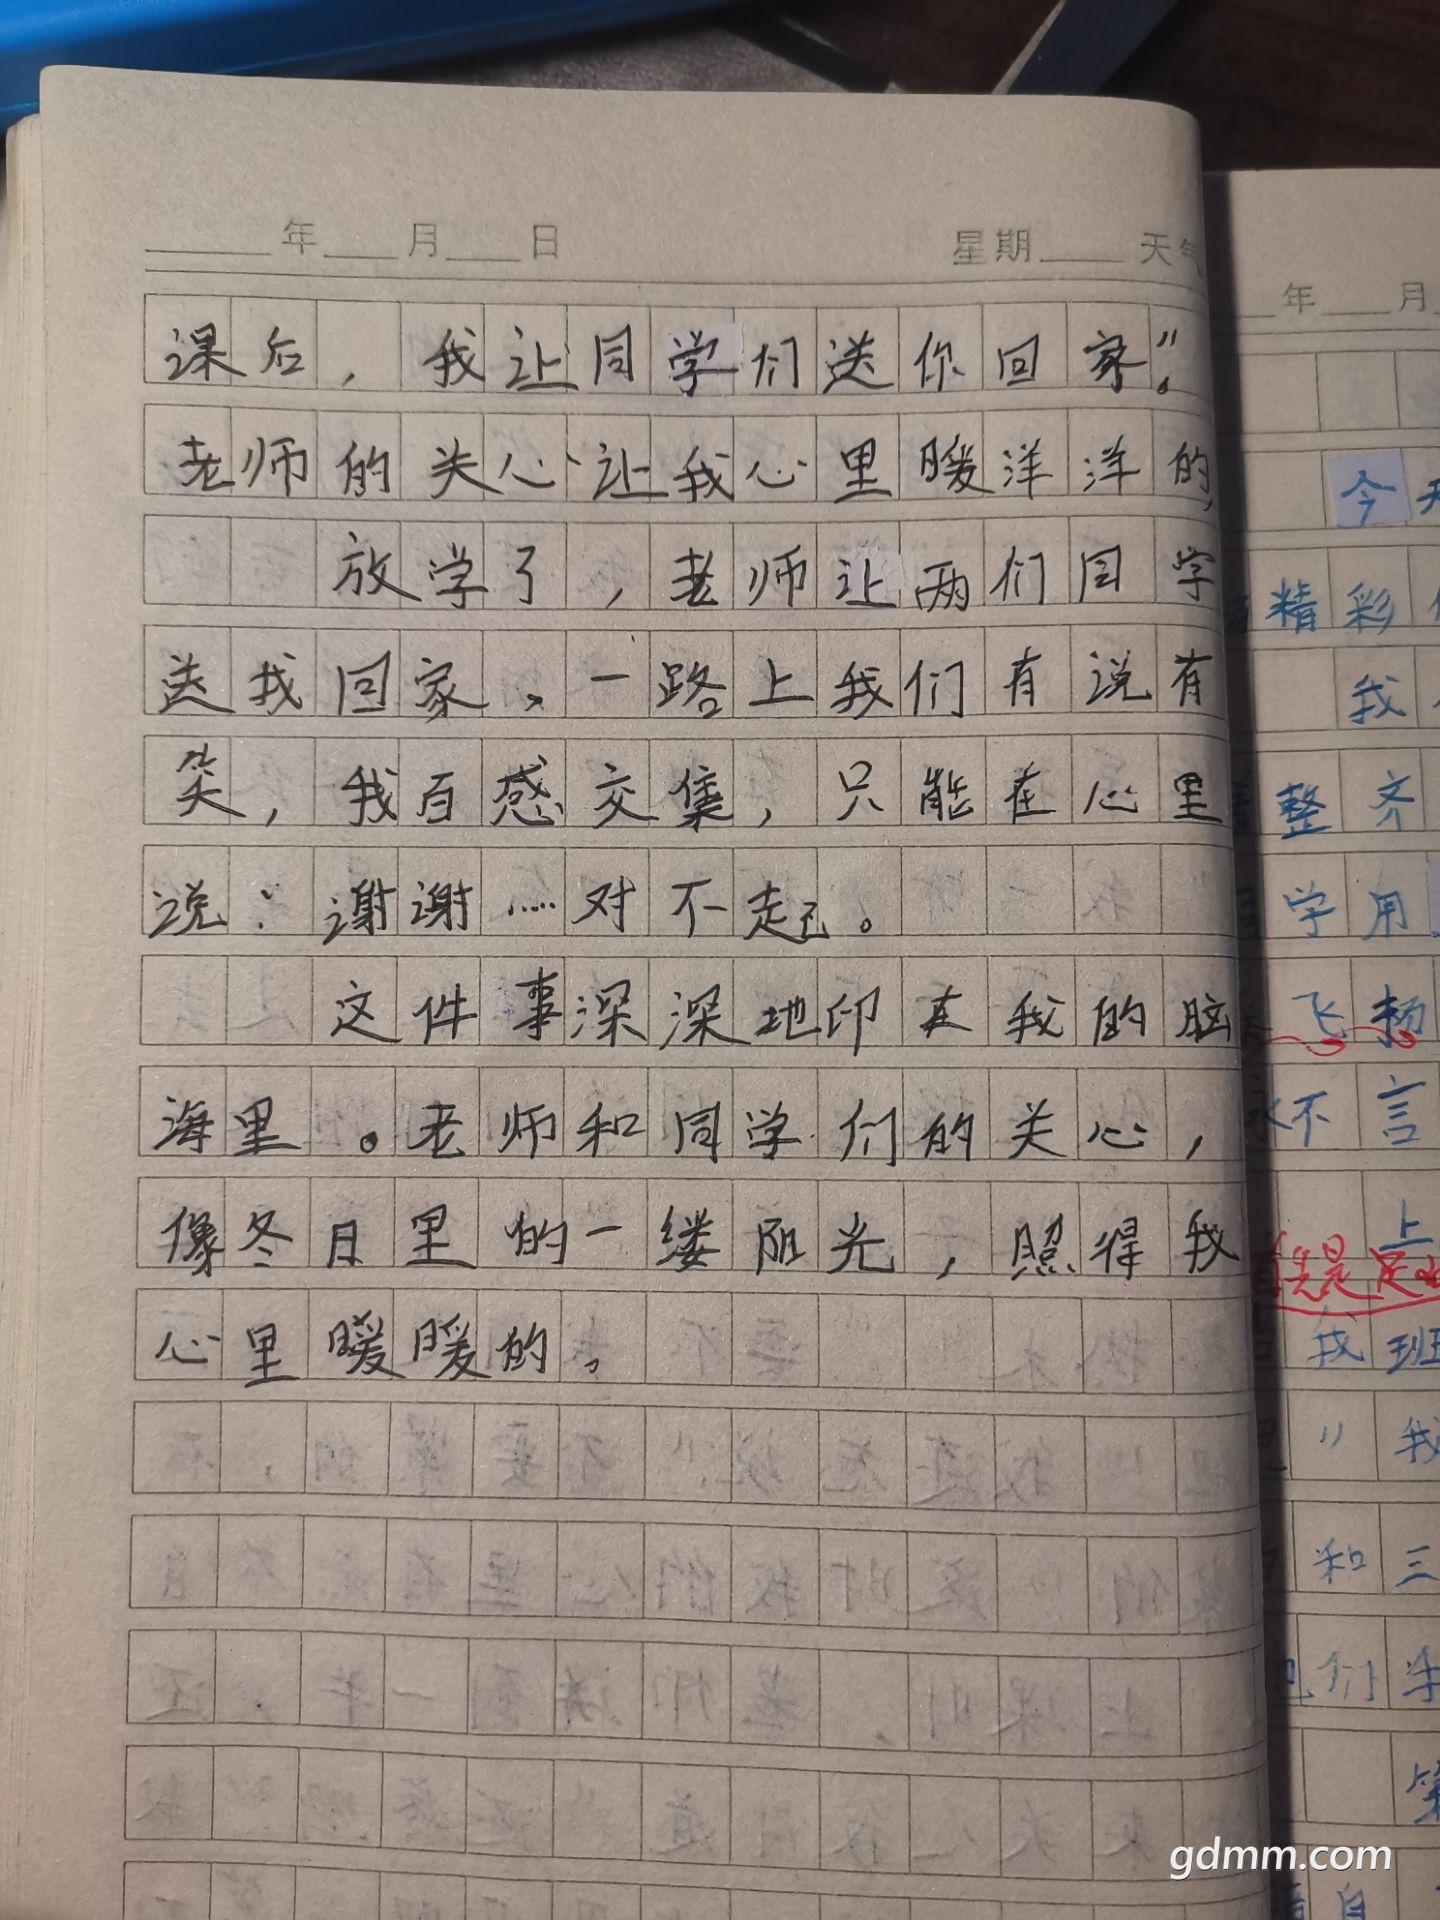 年 月 日 星期 天气
课后，我让同学们送你回家。"
老师的关心让我心里暖洋洋的，
放学了，老师让两们同学
送我回家。一路上我们有说有
笑，我百感交集，只能在心里
说：谢谢……对不起。
这件事深深地印在我的脑
海里。老师和同学们的关心，
像冬日里的一缕阳光，照得我
心里暖暖的。
年 月
今天
精彩
我
整齐
学用
飞杨
不言
上
我班
" 我
和三
们
gdmm.com